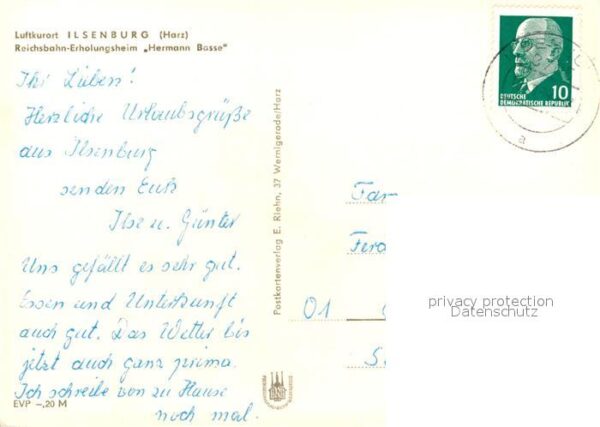 Luftkurort ILSENBURG (Harz)
Reichsbahn-Erholungsheim „Hermann Basse"
Ihr Lieben!
Herzliche Urlaubsgrüße
aus Ilsenburg
senden Euch
Ilse u. Günter
Uns gefällt es sehr gut.
Essen und Unterkunft
auch gut. Das Wetter bis
jetzt auch ganz prima.
Ich schreibe von zu Hause
noch mal.
EVP –,20 M
Postkartenverlag E. Riehn, 37 Wernigerode/Harz
10
DEUTSCHE
DEMOKRATISCHE REPUBLIK
a
Fam
01
privacy protection
Datenschutz